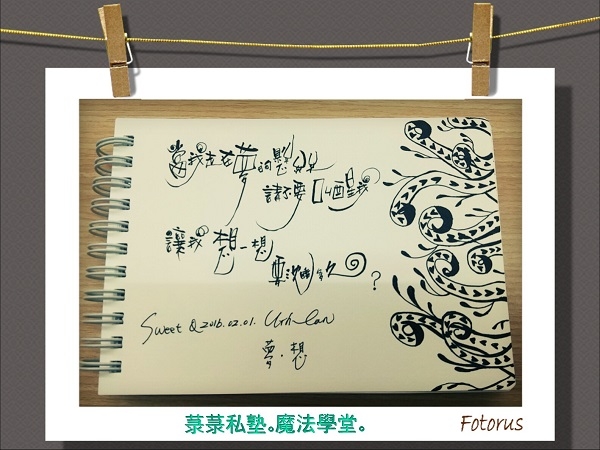 當我走在夢的懸崖
請不要叫醒我
讓我想一想
要沈 多久?
Sweet Q 2016.02.01.
夢.想
菉菉私塾。魔法學堂。
Fotorus